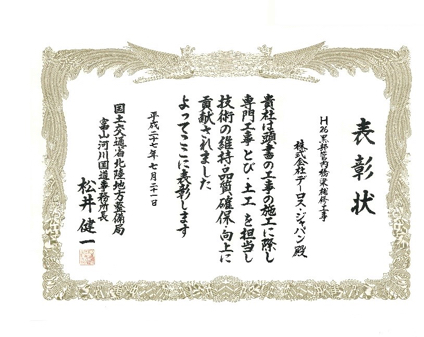 表彰状
H26黒部管内橋梁補修工事
株式会社デーロス・ジャパン殿
貴社は頭書の工事の施工に際し
専門工事とび・土工を担当し
技術の維持・品質確保・向上に
貢献されました
よってここに表彰します
平成二十七年七月二十一日
国土交通省北陸地方整備局
富山河川国道事務所長
松井健一